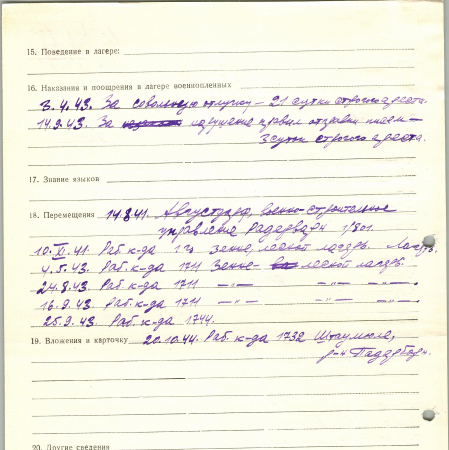 15. Поведение в лагере:
16. Наказания и поощрения в лагере военнопленных
3.4.43. За совольную отлучку – 21 сутки строгого ареста.
14.9.43. За нарушение правил отправки писем –
3 суток строгого ареста.
17. Знание языков
18. Перемещения 14.8.41. Августдорф, военно-строительное
управление Радервари 1/801.
10.XI.41. Раб. к-да лагерь.
4.5.43. Раб. к-да 1711 Зенне- лесной лагерь.
24.8.43. Раб. к-да 1711 –"– –"– –"–.
16.9.43. Раб. к-да 1711 –"– –"– –"–.
25.9.43. Раб. к-да 1744.
19. Вложения и карточку 20.10.44. Раб. к-да 1732 Штаумюле,
р-н Падерборн.
20. Другие сведения